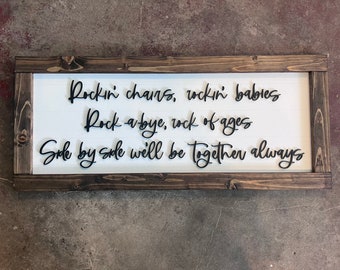 Rockin' chairs, rockin' babies
Rock-a-bye, rock of ages
Side by side we'll be together always